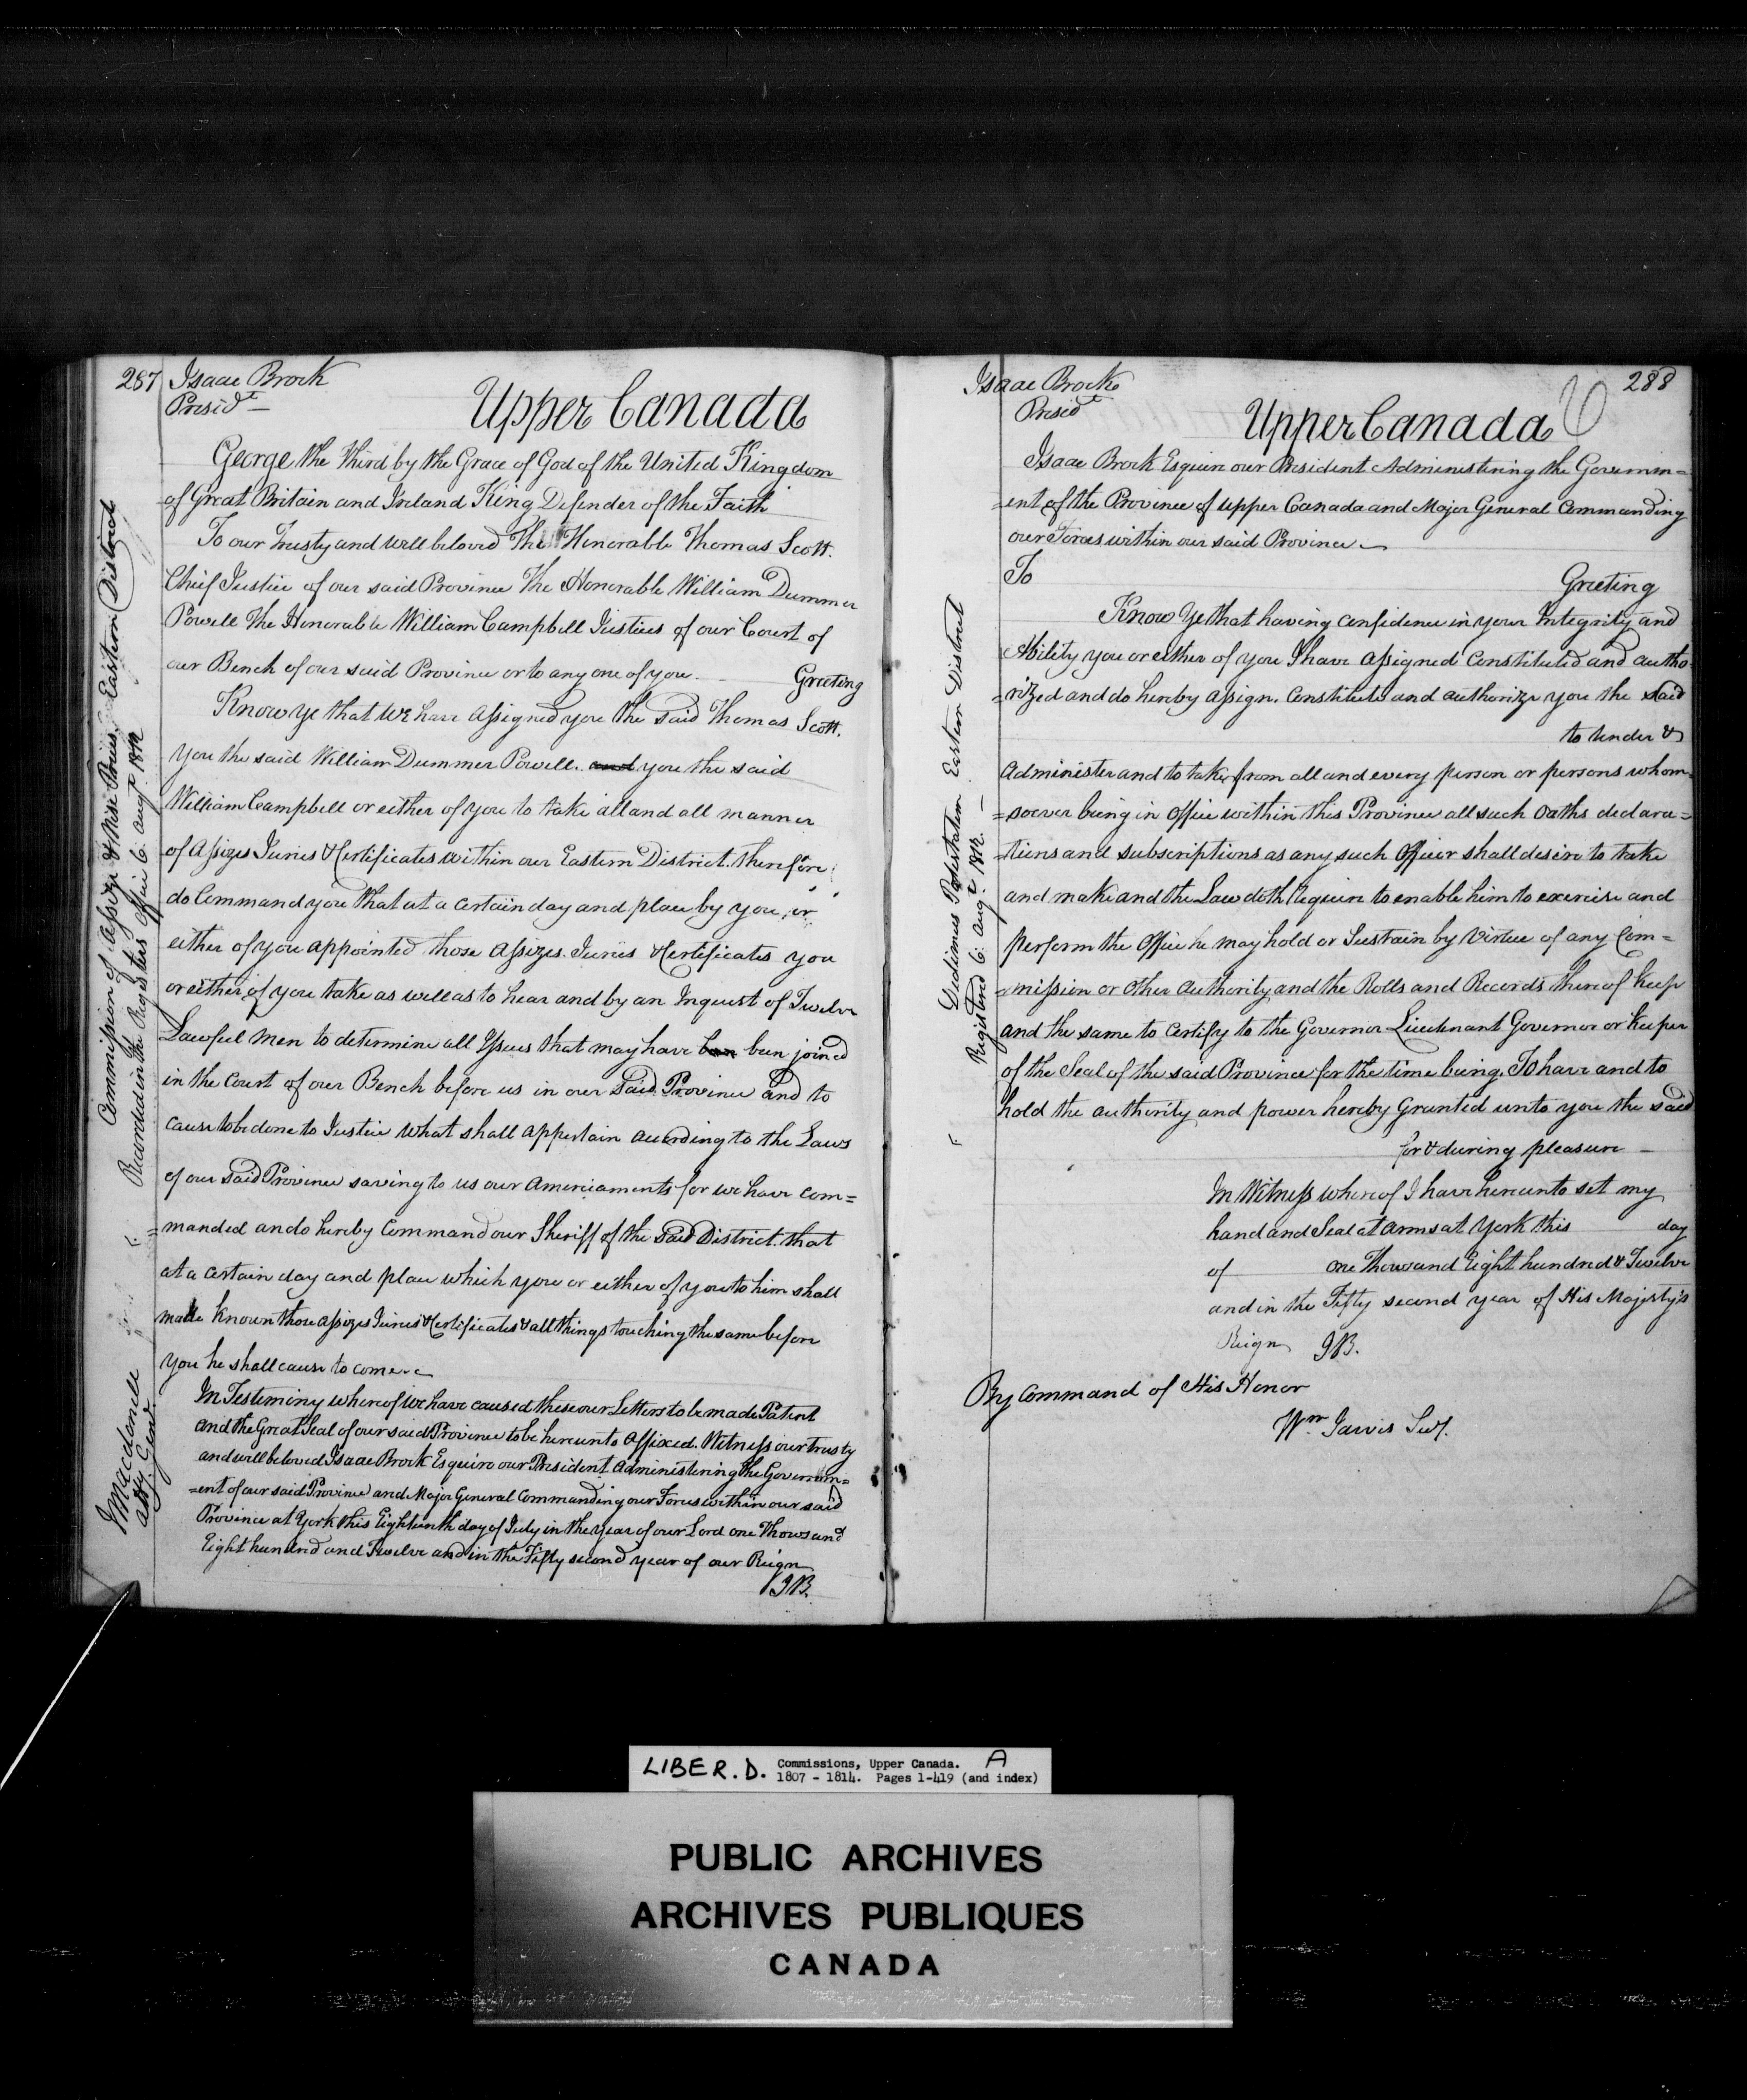 287
Isaac Brock
Presidt
Upper Canada
George the Third by the Grace of God of the United Kingdom
of Great Britain and Ireland King Defender of the Faith
To our Trusty and well beloved The Honorable Thomas Scott.
Chief Justice of our said Province The Honorable William Dummer
Powell The Honorable William Campbell Justices of our Court of
our Bench of our said Province or to any one of you. Greeting
Know ye that We have Assigned you the said Thomas Scott.
you the said William Dummer Powell. and you the said
William Campbell or either of you to take all and all manner
of Assizes Juries & Certificates within our Eastern District. therefore
do Command you that at a certain day and place by you, or
either of you appointed those Assizes. Juries & Certificates you
or either of you take as well as to hear and by an Inquest of Twelve
Lawful men to determine all Issues that may have been joined
in the Court of our Bench before us in our said Province and to
cause to be done to Justice what shall appertain according to the Laws
of our said Province saving to us our Amerciaments for we have com=
=manded and do hereby Command our Sheriff of the said District. that
at a certain day and place which you or either of you to him shall
make known those assizes Juries & Certificates & all things touching the same before
you he shall cause to come
In Testimony whereof we have caused these our Letters to be made Patent
and the Great Seal of our said Province to be hereunto Affixed. Witness our trusty
and well beloved Isaac Brock Esquire our President Administering the Governm=
=ent of our said Province and Major General Commanding our Forces within our said
Province at York this Eighteenth day of July in the year of our Lord one Thousand
Eight hundred and Twelve and in the Fifty second year of our Reign
IB.
Commission of Assize & Nise Prius, Eastern District
Recorded in the Registers Office 6: augt. 1812
J Macdonell
Atty. Genl.
288
Isaac Brock
Presidt
Upper Canada
Isaac Brock Esquire our President Administering the Governm=
=ent of the Province of Upper Canada and Major General Commanding
our Forces within our said Province
To Greeting
Know Ye that having confidence in your Integrity and
Ability you or either of you I have Assigned Constituted and autho
=rized and do hereby assign. Constitute and authorize you the said
to tender &
Administer and to take from all and every person or persons whom=
=soever being in Office within this Province all such Oaths declara=
=tions and subscriptions as any such Officer shall desire to take
and make and the Law doth Require to enable him to exercise and
perform the Office he may hold or Sustain by Virtue of any Com=
=mission or other Authority and the Rolls and Records thereof keep
and the same to certify to the Governor Lieutenant Governor or keeper
of the Seal of the said Province for the time being. To have and to
hold the authority and power hereby Granted unto you the said
for & during pleasure
In Witness whereof I have hereunto set my
hand and Seal at arms at York this day
of one Thousand Eight hundred & Twelve
and in the Fifty second year of His Majesty's
Reign IB.
By Command of His Honor
Wm. Jarvis Secy.
Dedimus Potestatem Eastern District
Registered 6: augt. 1812.
LIBER. D. Commissions, Upper Canada. A
1807 - 1814. Pages 1-419 (and index)
PUBLIC ARCHIVES
ARCHIVES PUBLIQUES
CANADA